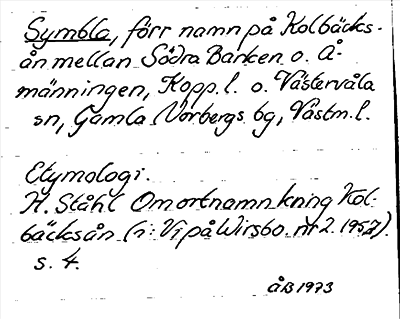 Symbla, förr namn på Kolbäcks-
ån mellan Södra Barken o. Å-
männingen, Kopp. l. o. Västervåla
sn, Gamla Norbergs bg, Västm. l.
Etymologi.
H. Ståhl Om ortnamn kring Kol-
bäcksån (i: Vi på Wirsbo. nr 2. 1957).
s. 4.
ÅB 1973